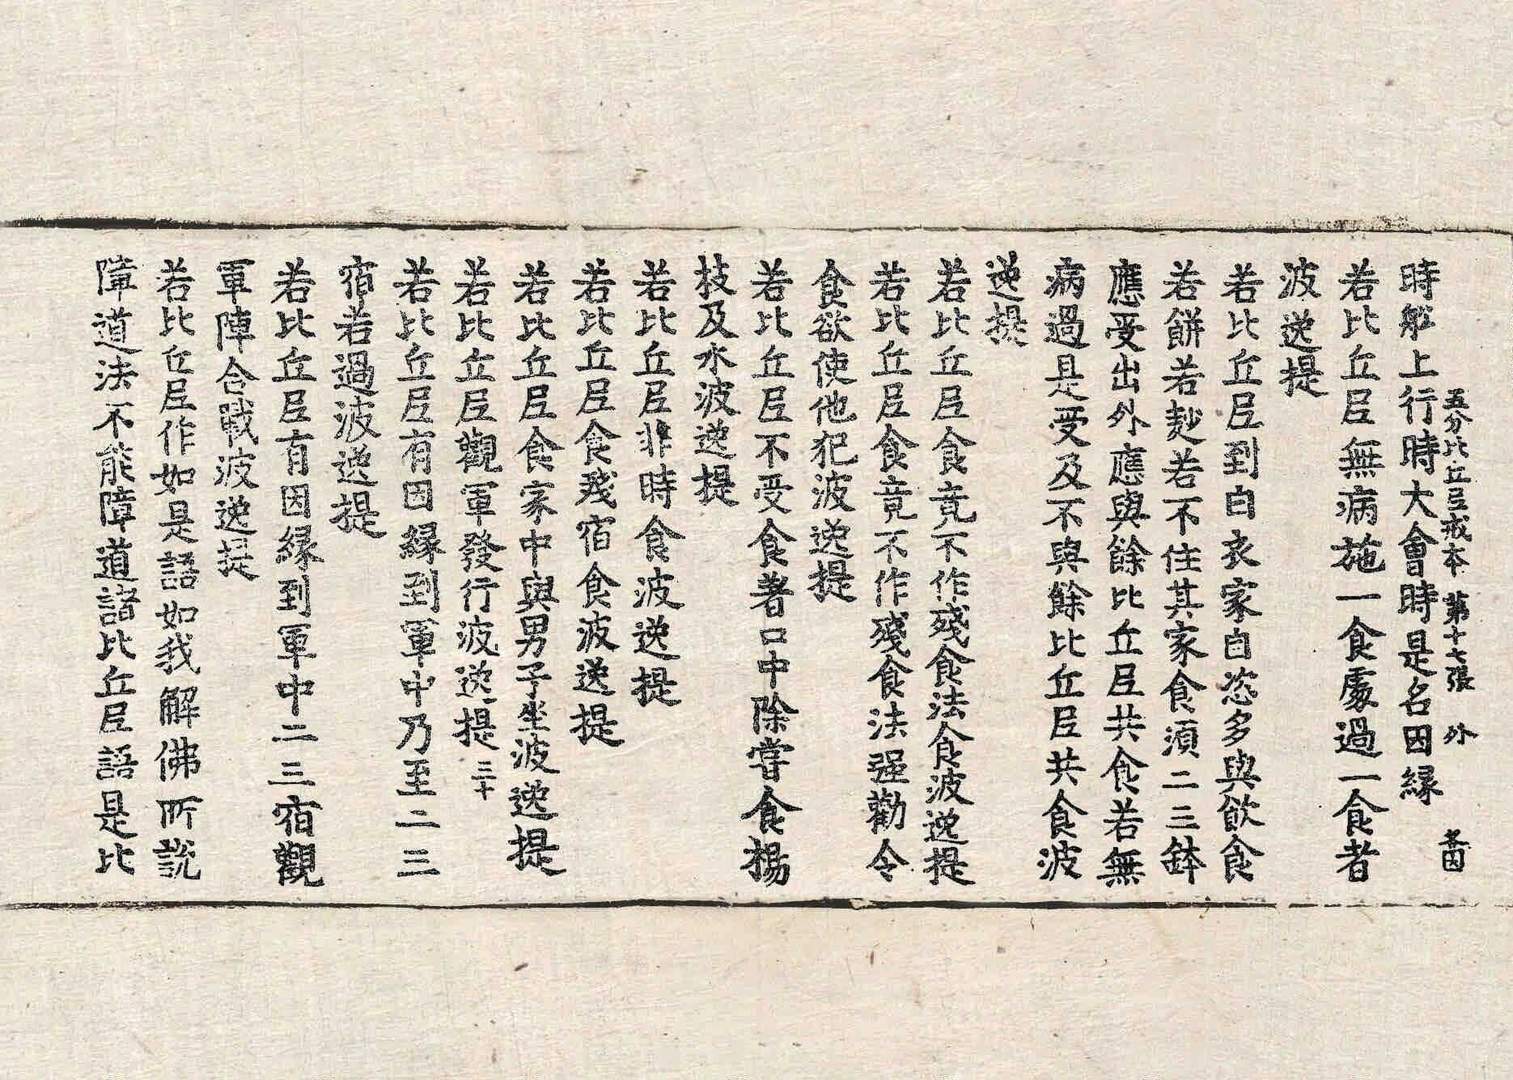 五分比丘尼戒本 第十七張 外
時舩上行時大會時是名因縁
若比丘尼無病施一食處過一食者
波逸提
若比丘尼到白衣家自恣多與飲食
若餅若麨若不住其家食湏二三鉢
應受出外應與餘比丘尼共食若無
病過是受及不與餘比丘尼共食波
逸提
若比丘尼食竟不作殘食法食波逸提
若比丘尼食竟不作殘食法强勸令
食欲使他犯波逸提
若比丘尼不受食著口中除嘗食楊
枝及水波逸提
若比丘尼非時食波逸提
若比丘尼食殘宿食波逸提
若比丘尼食家中與男子坐波逸提
若比丘尼觀軍發行波逸提 三十
若比丘尼有因縁到軍中乃至二三
宿若過波逸提
若比丘尼有因縁到軍中二三宿觀
軍陣合戰波逸提
若比丘尼作如是語如我解佛所説
障道法不能障道諸比丘尼語是比